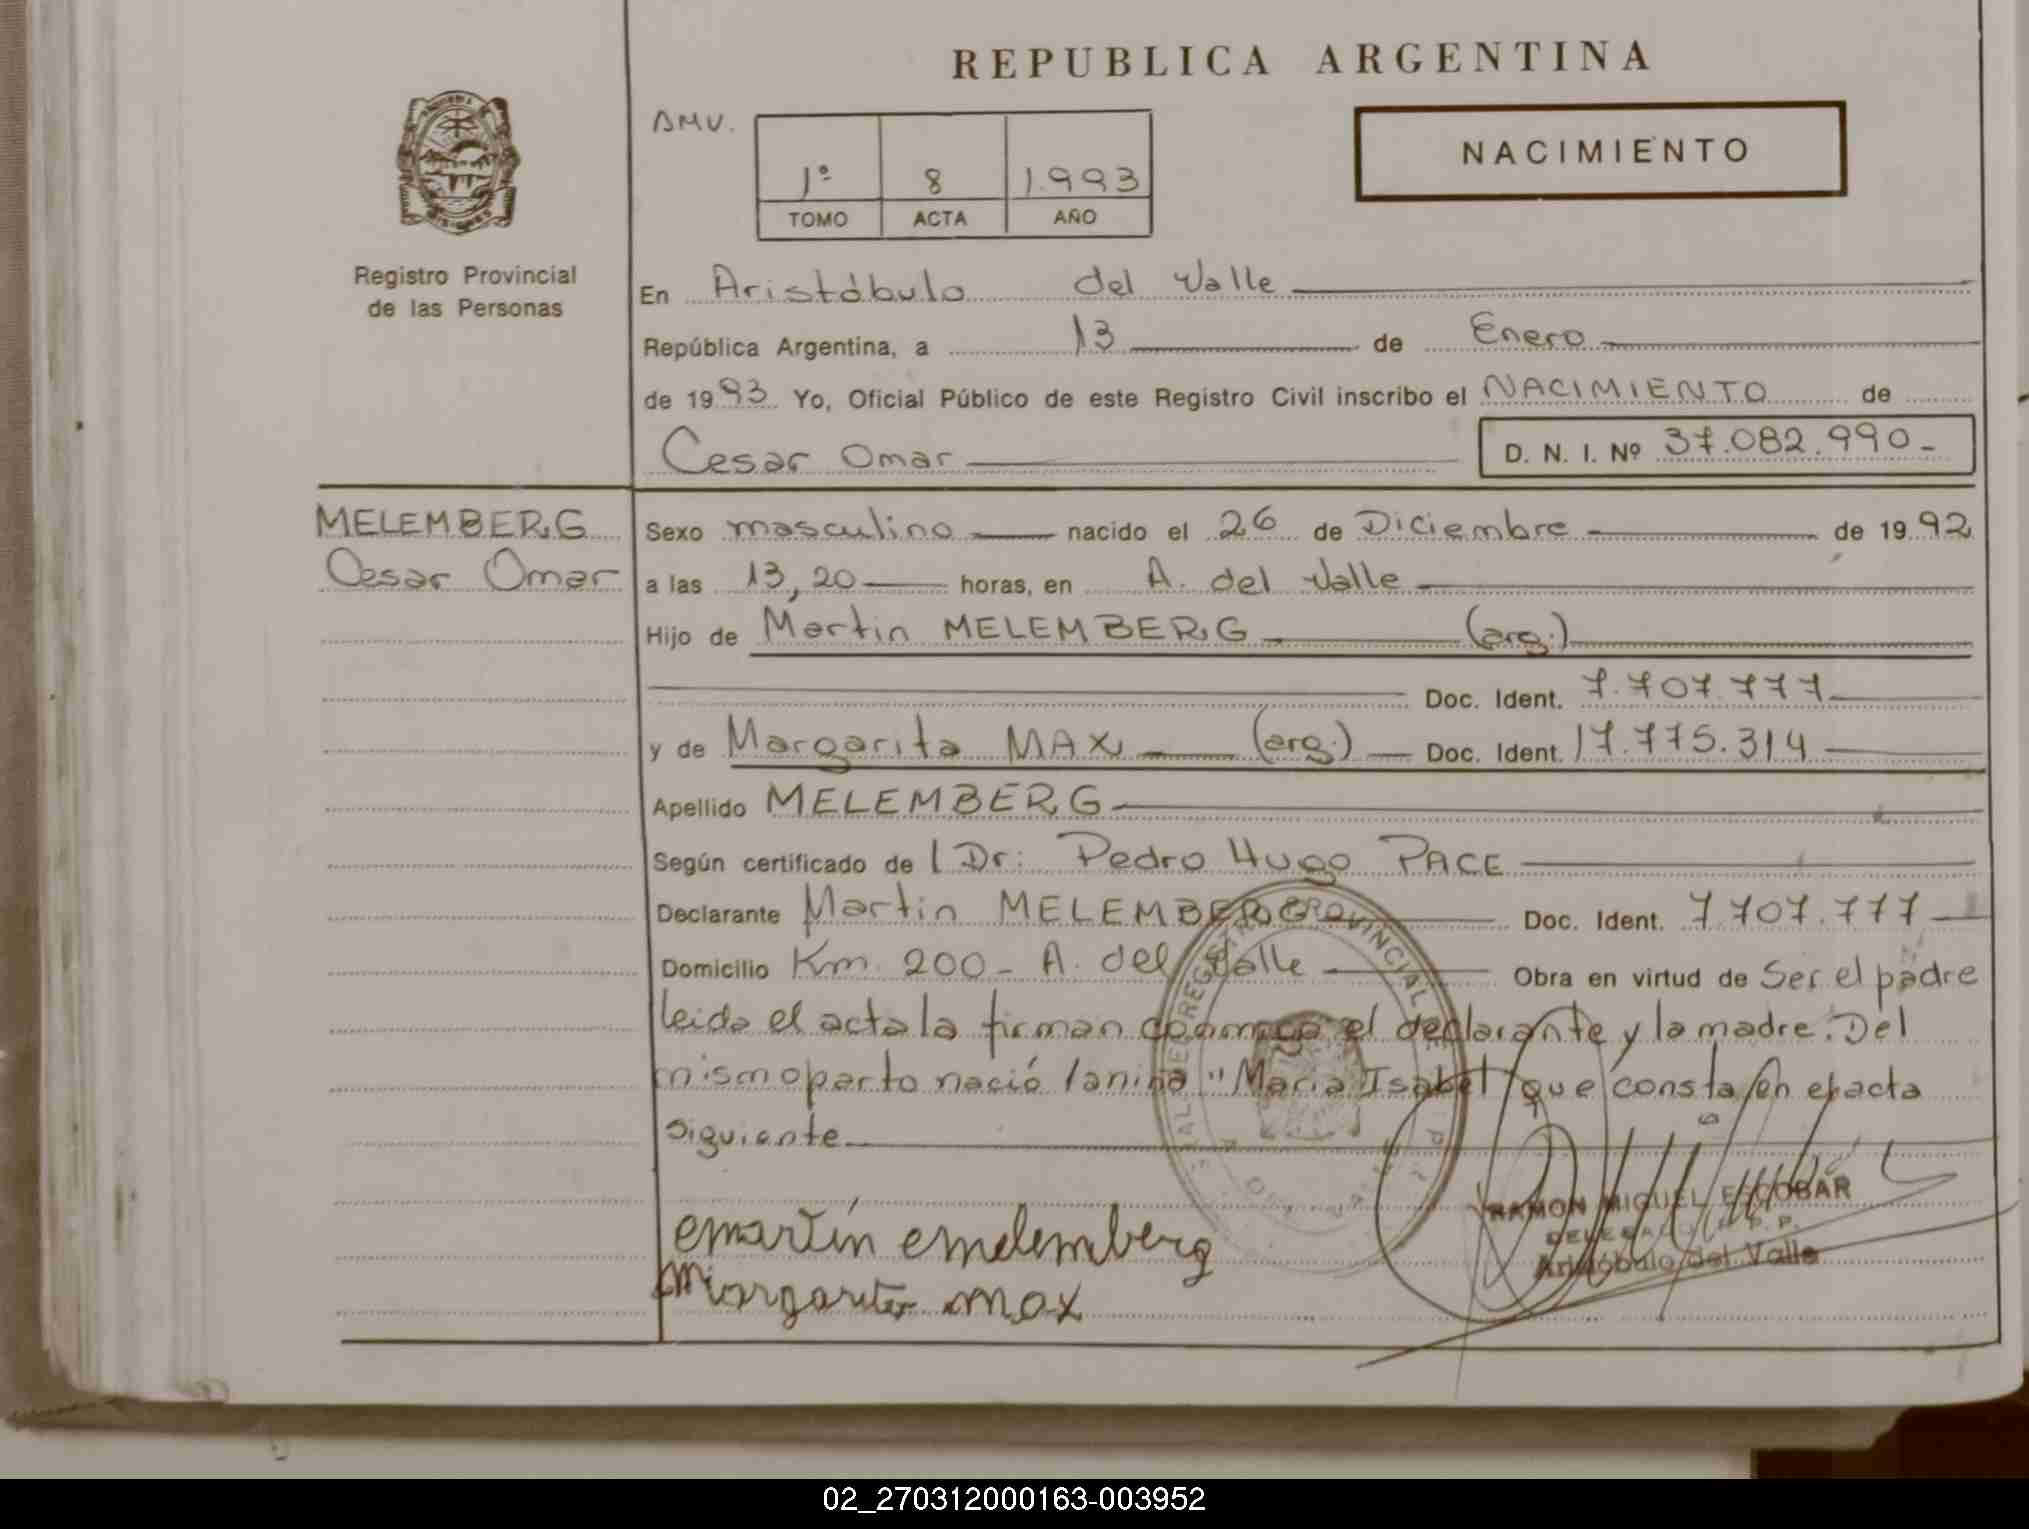 REPUBLICA ARGENTINA
NACIMIENTO
AMV.
1º 8 1.993
TOMO ACTA AÑO
Registro Provincial
de las Personas
En Aristóbulo del Valle
República Argentina, a 13 de Enero
de 1993 Yo, Oficial Público de este Registro Civil inscribo el NACIMIENTO de
Cesar Omar D. N. I. Nº 37.082.990-
MELEMBERG
Cesar Omar
Sexo masculino nacido el 26 de Diciembre de 1992
a las 13,20 horas, en A. del Valle
Hijo de Martin MELEMBERG (arg.)
Doc. Ident. 7.707.777
y de Margarita MAX (arg.) Doc. Ident. 17.775.314
Apellido MELEMBERG
Según certificado de l Dr: Pedro Hugo PACE
Declarante Martin MELEMBERG Doc. Ident. 7.707.777
Domicilio Km. 200- A. del Valle Obra en virtud de Ser el padre
leida el acta la firman conmigo el declarante y la madre. Del
mismo parto nació la niña "Maria Isabel" que consta en el acta
siguiente
REGISTRO PROVINCIAL
martín melemberg
Margarita max
RAMON MIGUEL ESCOBAR
Aristóbulo del Valle
02_270312000163-003952